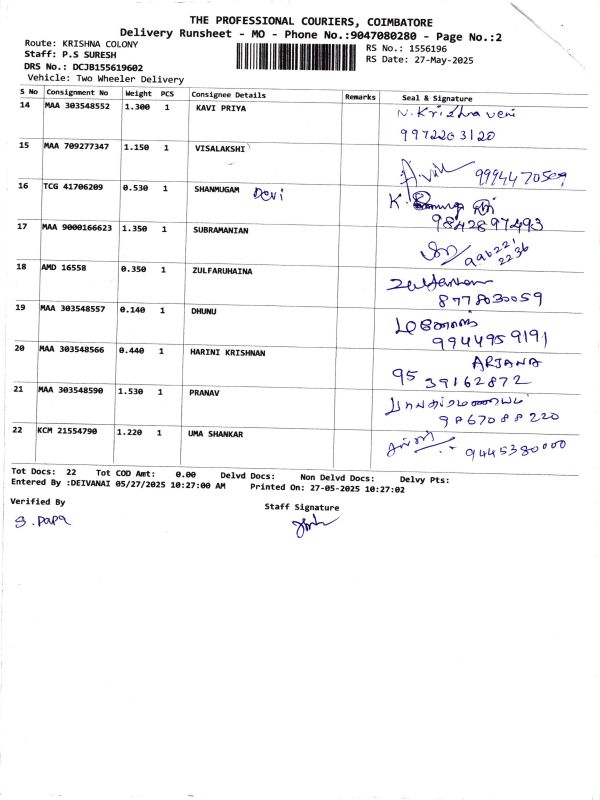 THE PROFESSIONAL COURIERS, COIMBATORE
Delivery Runsheet - MO - Phone No.:9047080280 - Page No.:2
Route: KRISHNA COLONY RS No.: 1556196
Staff: P.S SURESH RS Date: 27-May-2025
DRS No.: DCJB155619602
Vehicle: Two Wheeler Delivery
S No Consignment No Weight PCS Consignee Details Remarks Seal & Signature
14 MAA 303548552 1.300 1 KAVI PRIYA N.Krishnaveni
9972203120
15 MAA 709277347 1.150 1 VISALAKSHI
9994470509
16 TCG 41706209 0.530 1 SHANMUGAM Devi K.
9842897493
17 MAA 9000166623 1.350 1 SUBRAMANIAN
18 AMD 16558 0.350 1 ZULFARUHAINA
8778030059
19 MAA 303548557 0.140 1 DHUNU
9944959191
20 MAA 303548566 0.440 1 HARINI KRISHNAN ARJANA
95 39162872
21 MAA 303548590 1.530 1 PRANAV
9867088220
22 KCM 21554790 1.220 1 UMA SHANKAR
9445380000
Tot Docs: 22 Tot COD Amt: 0.00 Delvd Docs: Non Delvd Docs: Delvy Pts:
Entered By :DEIVANAI 05/27/2025 10:27:00 AM Printed On: 27-05-2025 10:27:02
Verified By Staff Signature
S. Papa